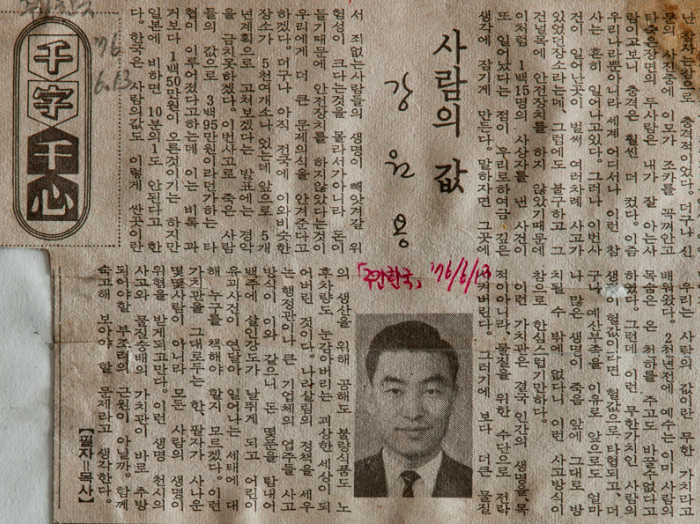 참으로 충격적이었다. 더구나 신
문의 사진중에 이모가 조카를 꼭껴안고
타죽은장면의 두사람은 내가 잘 아는사
람이고보니 충격은 훨씬 더 컸다. 이즘
우리나라뿐아니라 세계 어디서나 이런 참
사는 흔히 일어나고있다. 그러나 이번사
건이 일어난곳이 벌써 여러차례 사고가
있었던장소라는데、그럼에도 불구하고 그
건널목에 안전장치를 하지 않았기때문에
이처럼 1백15명의 사상자를 낸 사건이
또 일어났다는 점이 우리로하여금 깊은
생각에 잠기게 만든다. 말하자면 그곳에
사람의 값
강원용
서 죄없는사람들의 생명이 빼앗겨질 위
험성이 크다는것을 몰라서가아니라 돈이
들기때문에 안전장치를 하지않았다는것이
우리에게 더 큰 문제의식을 안겨준다고
하겠다. 더구나 아직 전국에 이와비슷한
장소가 5천여개소나 있는데 앞으로 5개
년계획으로 고쳐보겠다는 발표에는 경악
을 금치못하겠다. 이번사고로 죽은 사람
들의 값으로 3백95만원이라던가하는 타
협이 이루어졌다고하는데 이는 비록 과
거보다 1백50만원이 오른것이기는 하지만
일본에 비하면 10분의1도 안된다고 한
다. 한국은 사람의값도 이렇게 싼곳이란
千字千心
'76
6.13
「주간한국」 '76/6/13
우리는 사람의 값이란 무한 가치라고
배워왔다. 2천년전에 예수는 이미 사람의
목숨은 온 천하를 주고도 바꿀수없다고
하였다. 그런데 이런 무한가치인 사람의
생명이 헐값이라면 헐값으로 타협되고、더
구나 예산부족을 이유로 앞으로도 얼마
나 많은 생명이 죽음 앞에 그대로 방
치될 수 밖에 없다니 이런 사고방식이
참으로 한심스럽기만하다.
이런 가치관은 결국 인간의 생명을 목
적이아니라 물질을 위한 수단으로 전락
시켜버린다. 그러기에 보다 더큰 물질
의 생산을 위해 공해도 불량식품도 노
후차량도 눈감아버리는 괴상한세상이 되
어버린 것이다. 나라살림의 정책을 세우
는 행정관이나 큰 기업체의 업주들 사고
방식이 이와 같으니 돈 몇푼을 탐내어
백주에 살인강도가 날뛰게 되고 어린이
유괴사건이 연달아 일어나는 세태에 대
해 누구를 책해야 할지 모르겠다. 이런
가치관을 그대로두는 한、팔자가 사나운
몇몇사람이 아니라 모든 사람의 생명이
위협을 받게되고만다. 이런 생명 천시의
사고와 물질숭배의 가치관이 바로 추방
되어야할 부조리의 근원이 아닐까. 함께
숙고해 보아야 할 문제라고 생각한다.
【필자=목사】